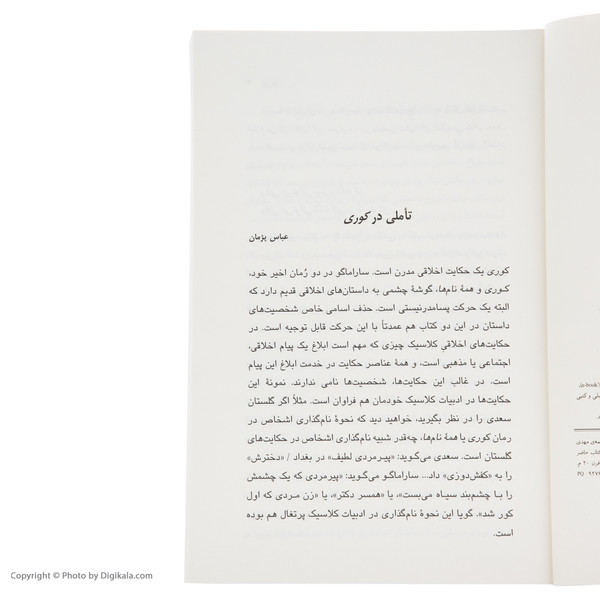 تأملی در کوری
عباس پژمان
کوری یک حکایت اخلاقی مدرن است. ساراماگو در دو رُمان اخیر خود،
کوری و همهٔ نام‌ها، گوشهٔ چشمی به داستان‌های اخلاقی قدیم دارد که
البته یک حرکت پسامدرنیستی است. حذف اسامی خاص شخصیت‌های
داستان در این دو کتاب هم عمدتاً با این حرکت قابل توجیه است. در
حکایت‌های اخلاقیِ کلاسیک چیزی که مهم است ابلاغ یک پیام اخلاقی،
اجتماعی یا مذهبی است، و همهٔ عناصر حکایت در خدمت ابلاغ این پیام
است. در غالب این حکایت‌ها، شخصیت‌ها نامی ندارند. نمونهٔ این
حکایت‌ها در ادبیات کلاسیک خودمان هم فراوان است. مثلاً اگر گلستان
سعدی را در نظر بگیرید، خواهید دید که نحوهٔ نام‌گذاری اشخاص در
رمان کوری یا همهٔ نام‌ها، چه‌قدر شبیه نام‌گذاری اشخاص در حکایت‌های
گلستان است. سعدی می‌گوید: «پیرمردی لطیف» در بغداد / «دخترش»
را به «کفش‌دوزی» داد... ساراماگو می‌گوید: «پیرمردی که یک چشمش
را با چشم‌بند سیاه می‌بست»، یا «همسر دکتر»، یا «زن مردی که اول
کور شد». گویا این نحوهٔ نام‌گذاری در ادبیات کلاسیک پرتغال هم بوده
است.
Copyright © Photo by Digikala.com